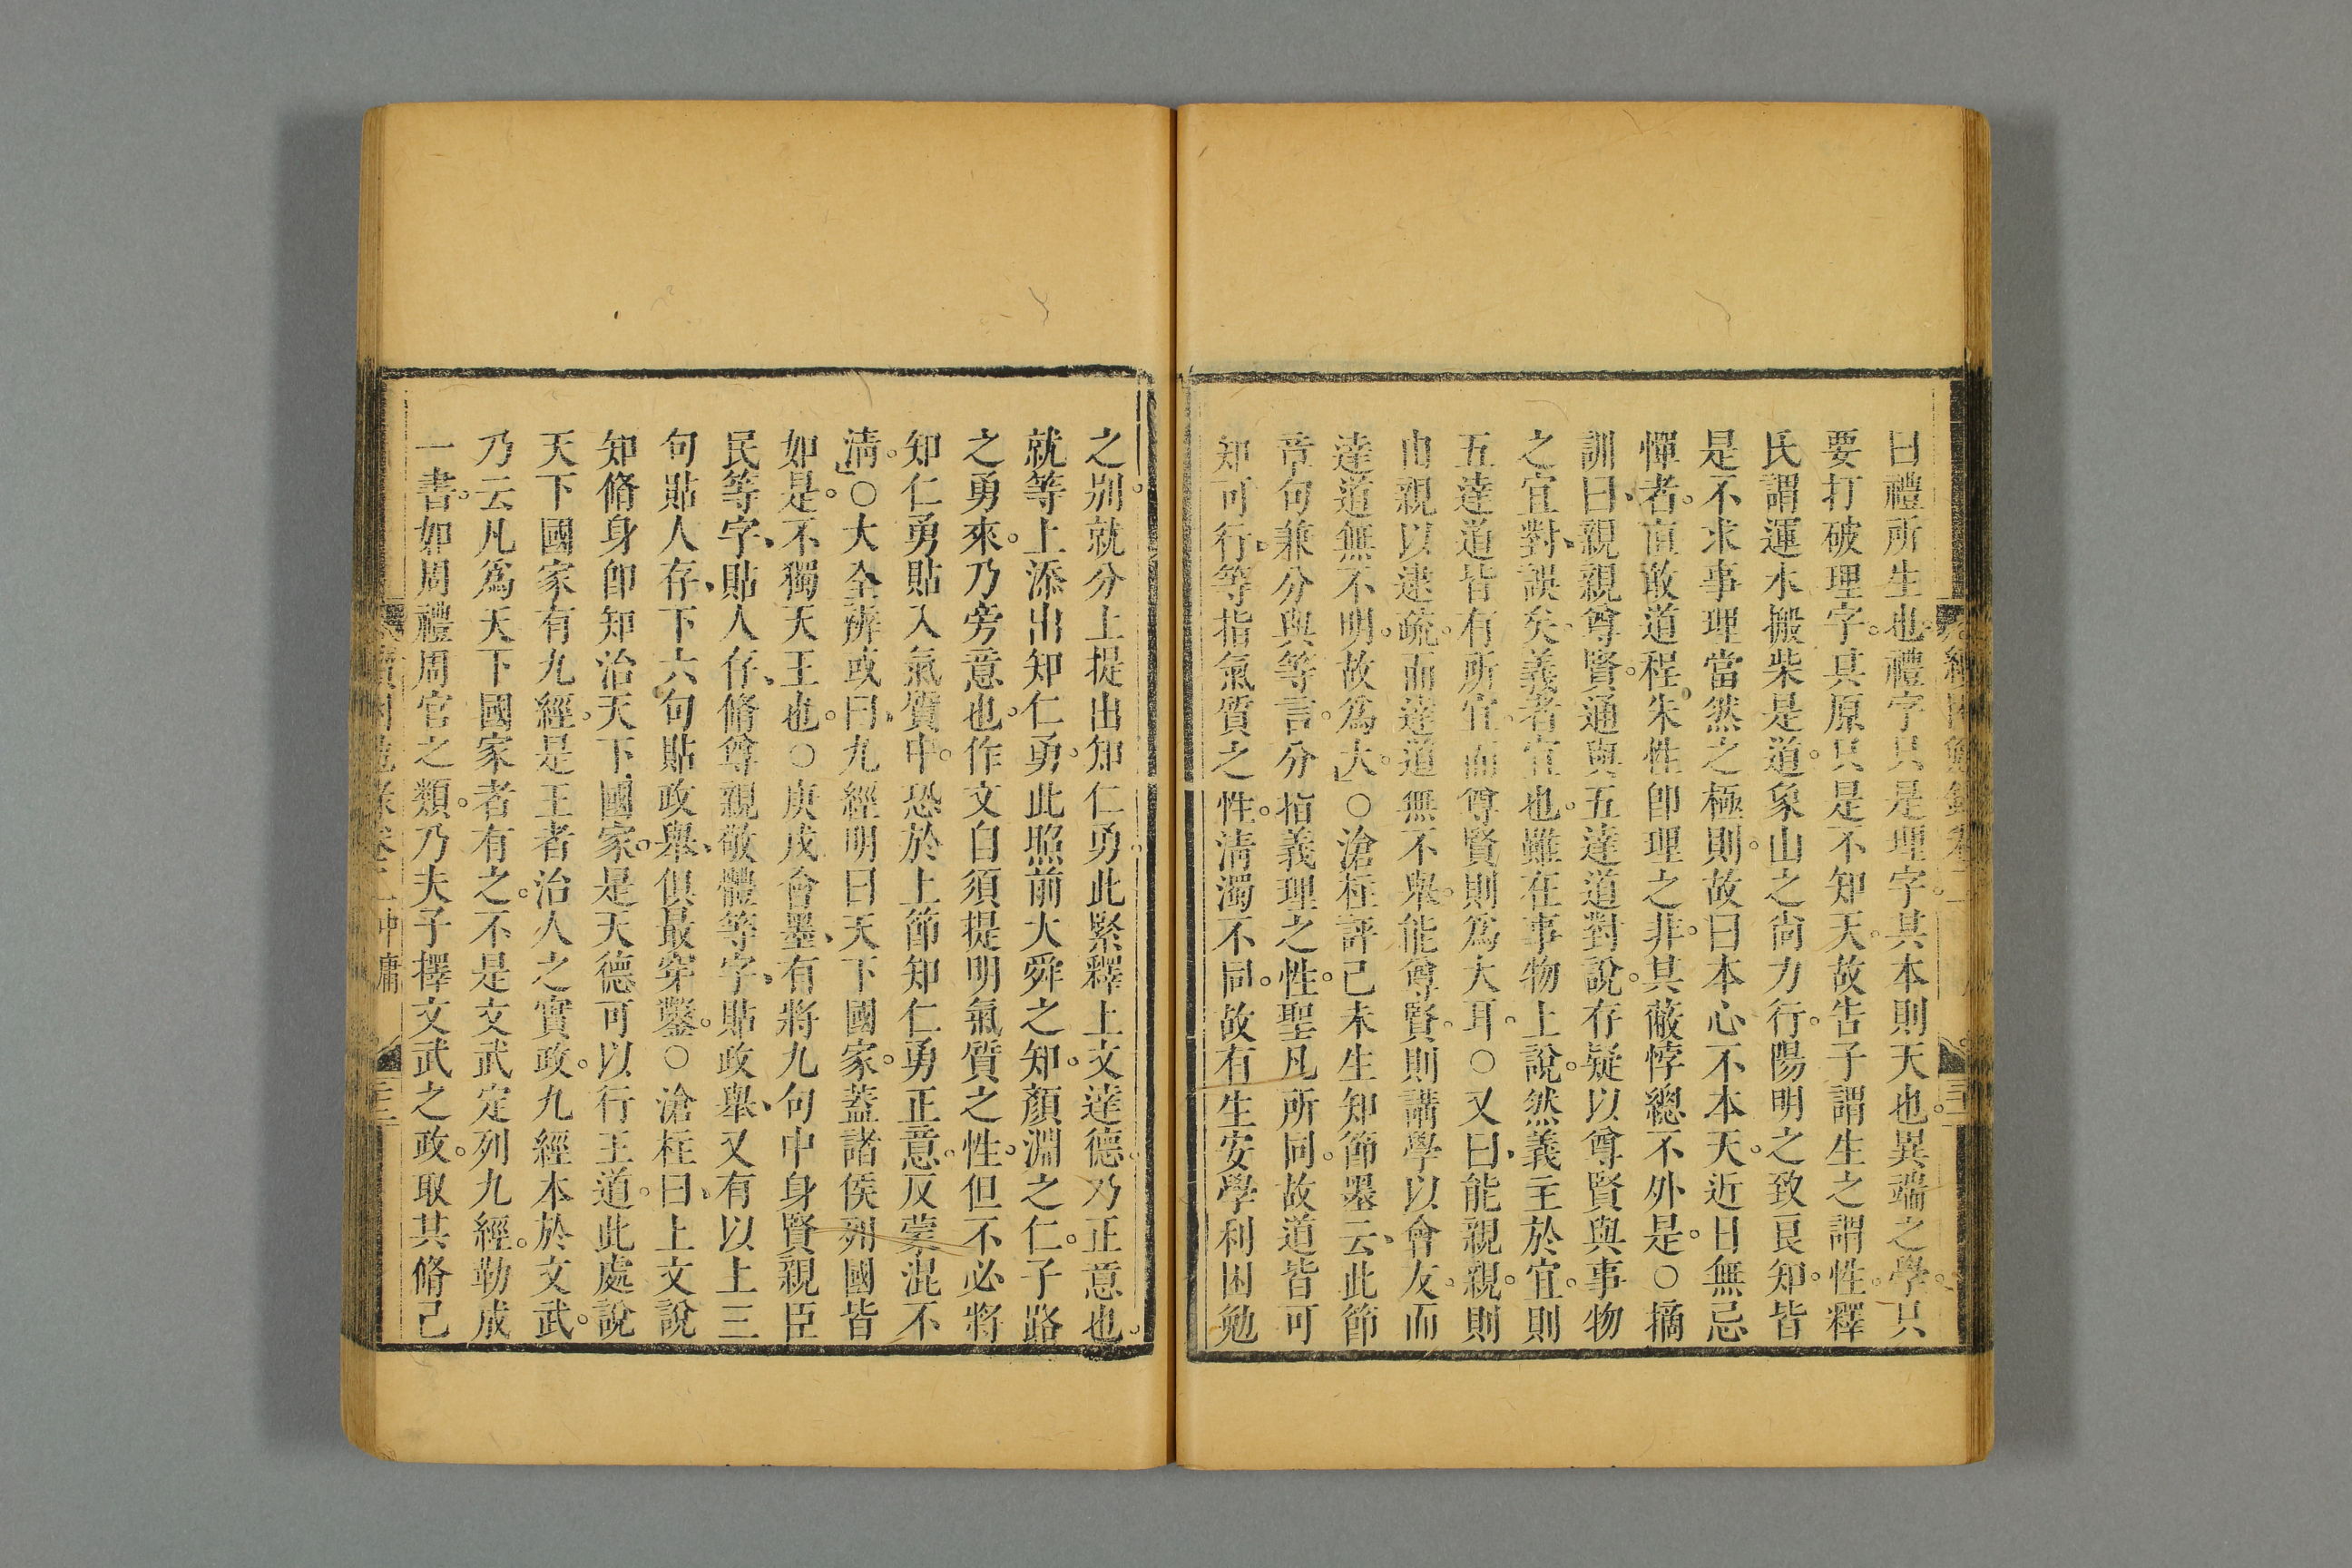 曰禮所生也。禮字只是理字。其本則天也。異端之學。只
要打破理字。其原只是不知天。故告子謂生之謂性。釋
氏謂運水搬柴是道。象山之尚力行。陽明之致良知。皆
是不求事理當然之極則。故曰本心不本天。近日無忌
憚者。直敢道程朱性卽理之非。其蔽悖總不外是。○摘
訓曰、親親尊賢。通與五達道對說。存疑以尊賢與事物
之宜對、誤矣。義者宜也。雖在事物上說。然義主於宜。則
五達道皆有所宜。而尊賢則爲大耳。○又曰、能親親。則
由親以逮疏。而達道無不舉。能尊賢。則講學以會友。而
達道無不明。故爲大。」○滄柱評己未生知節墨云、此節
章句兼分與等言。分指義理之性。性聖凡所同。故道皆可
知可行、等指氣質之性。淸濁不同。故有生安學利困勉
之别。就分上提出知仁勇。此緊釋上文達德。乃正意也。
就等上添出知仁勇。此照前大舜之知。顏淵之仁。子路
之勇來。乃旁意也。作文自須提明氣質之性。但不必將
知仁勇貼入氣質中。恐於上節知仁勇正意。反蒙混不
淸。」○大全辨或曰、九經明曰天下國家。蓋諸侯列國皆
如是。不獨天王也。○庚戌會墨、有將九句中身賢親臣
民等字、貼人存、脩尊親敬體等字、貼政舉、又有以上三
句貼人存、下六句貼政舉、俱最穿鑿。○滄柱曰、上文說
知脩身卽知治天下國家。是天德可以行王道。此處說
天下國家有九經。是王者治人之實政。九經本於文武。
乃云凡爲天下國家者有之。不是文武定列九經。勒成
一書。如周禮周官之類。乃夫子擇文武之政。取其脩己
中庸